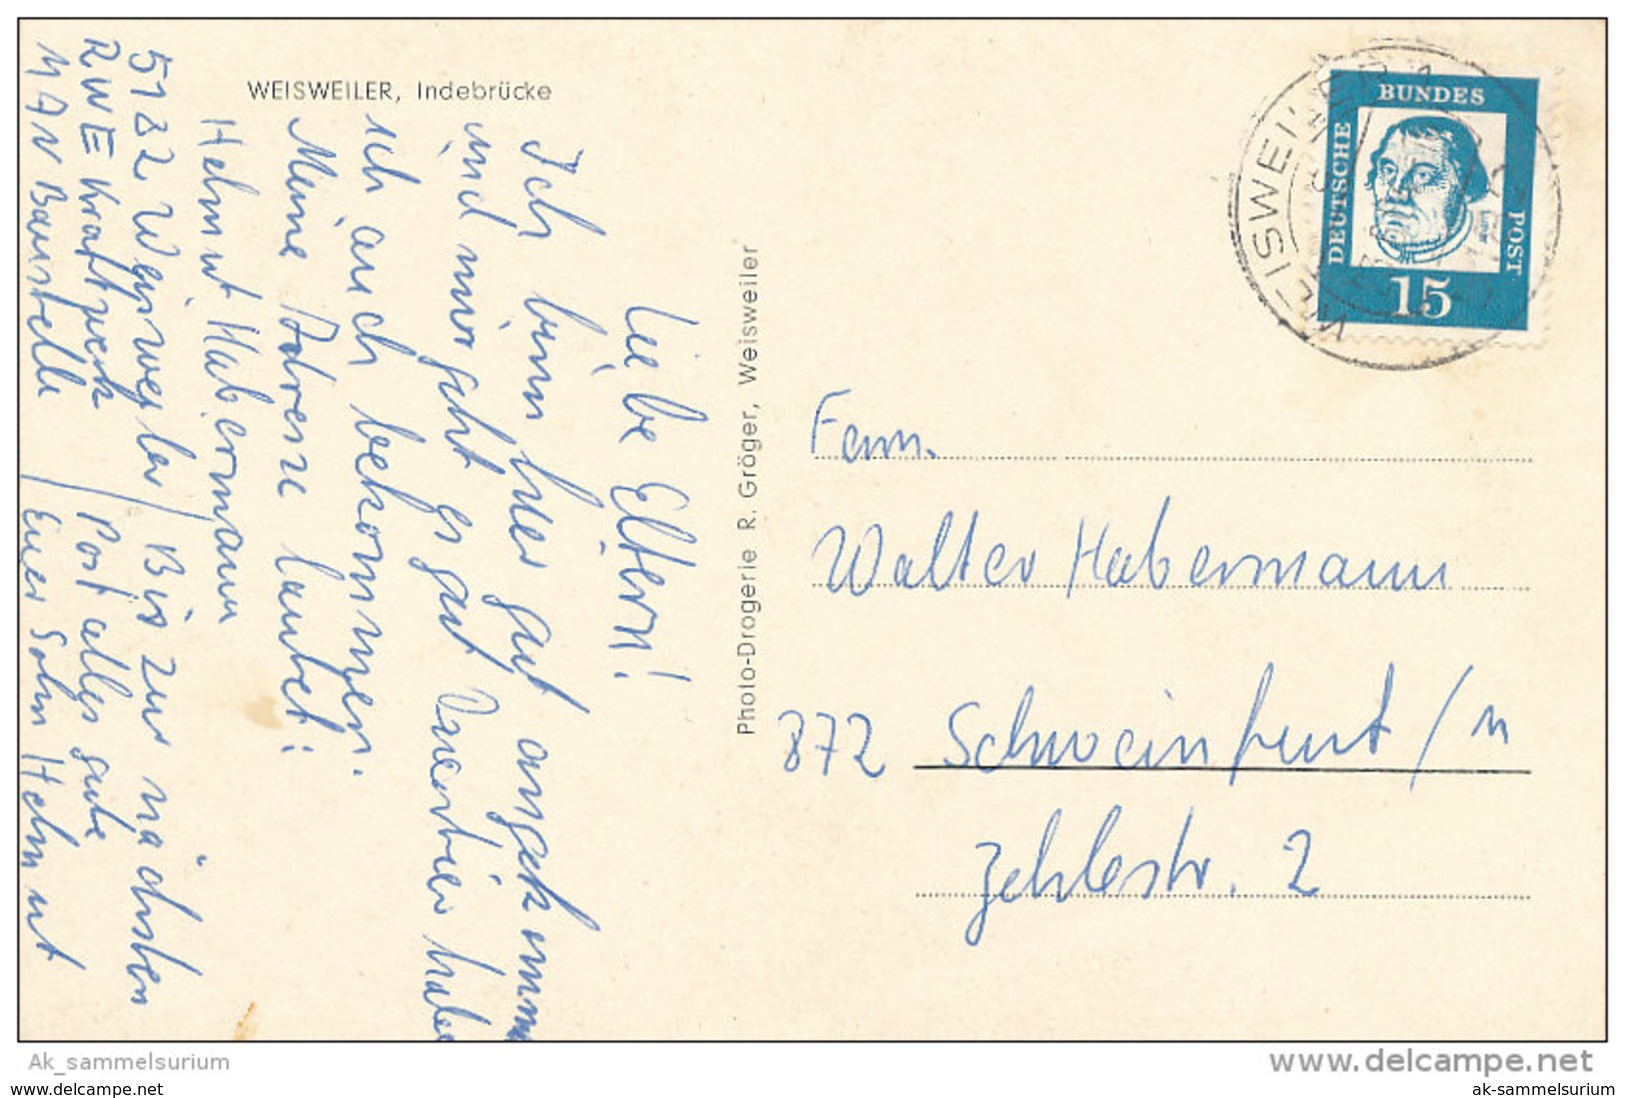 WEISWEILER, Indebrücke
Liebe Eltern!
Ich bin hier gut angekommen
und mir geht es gut Quartier habe
ich auch bekommen.
Meine Adresse lautet:
Helmut Habermann
5182 Weisweiler / Bis zur nächsten
RWE Kraftwerk / Post alles gute
MAN Baustelle / Euer Sohn Helmut
Photo-Drogerie R. Gröger, Weisweiler
DEUTSCHE
BUNDES
POST
15
Luther
WEISWEILER
Fam.
Walter Habermann
872 Schweinfurt/M
Zehlestr. 2
Ak_sammelsurium
www.delcampe.net
www.delcampe.net
ak-sammelsurium